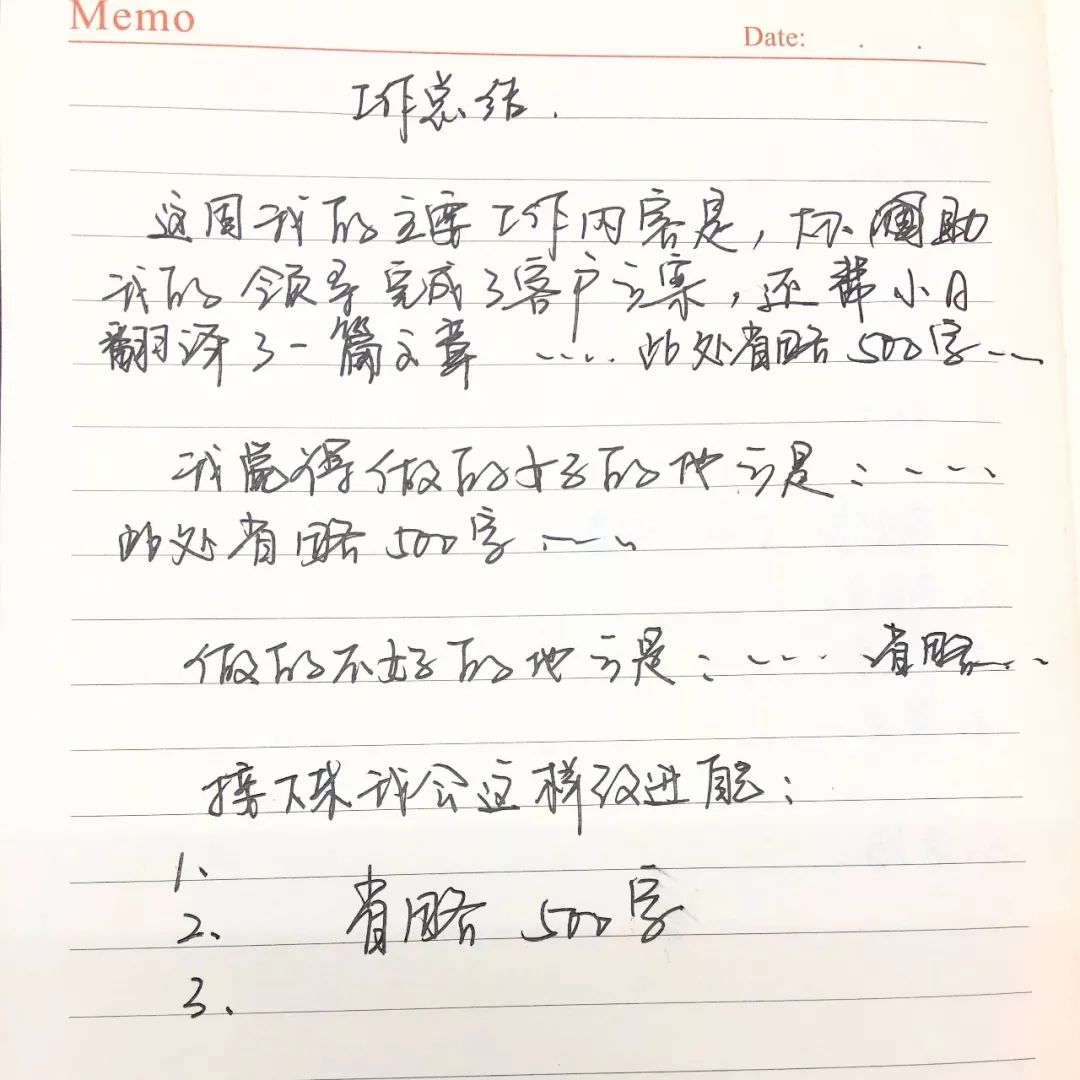 Memo
Date: . .
工作总结.
这周我的主要工作内容是，协助
我的领导完成了客户方案，还帮小A
翻译了一篇文章 ..... 此处省略500字...
我觉得做的好的地方是：.....
此处省略500字.....
做的不好的地方是：..... 省略...
接下来我会这样改进自己：
1、
2、 省略 500字
3、